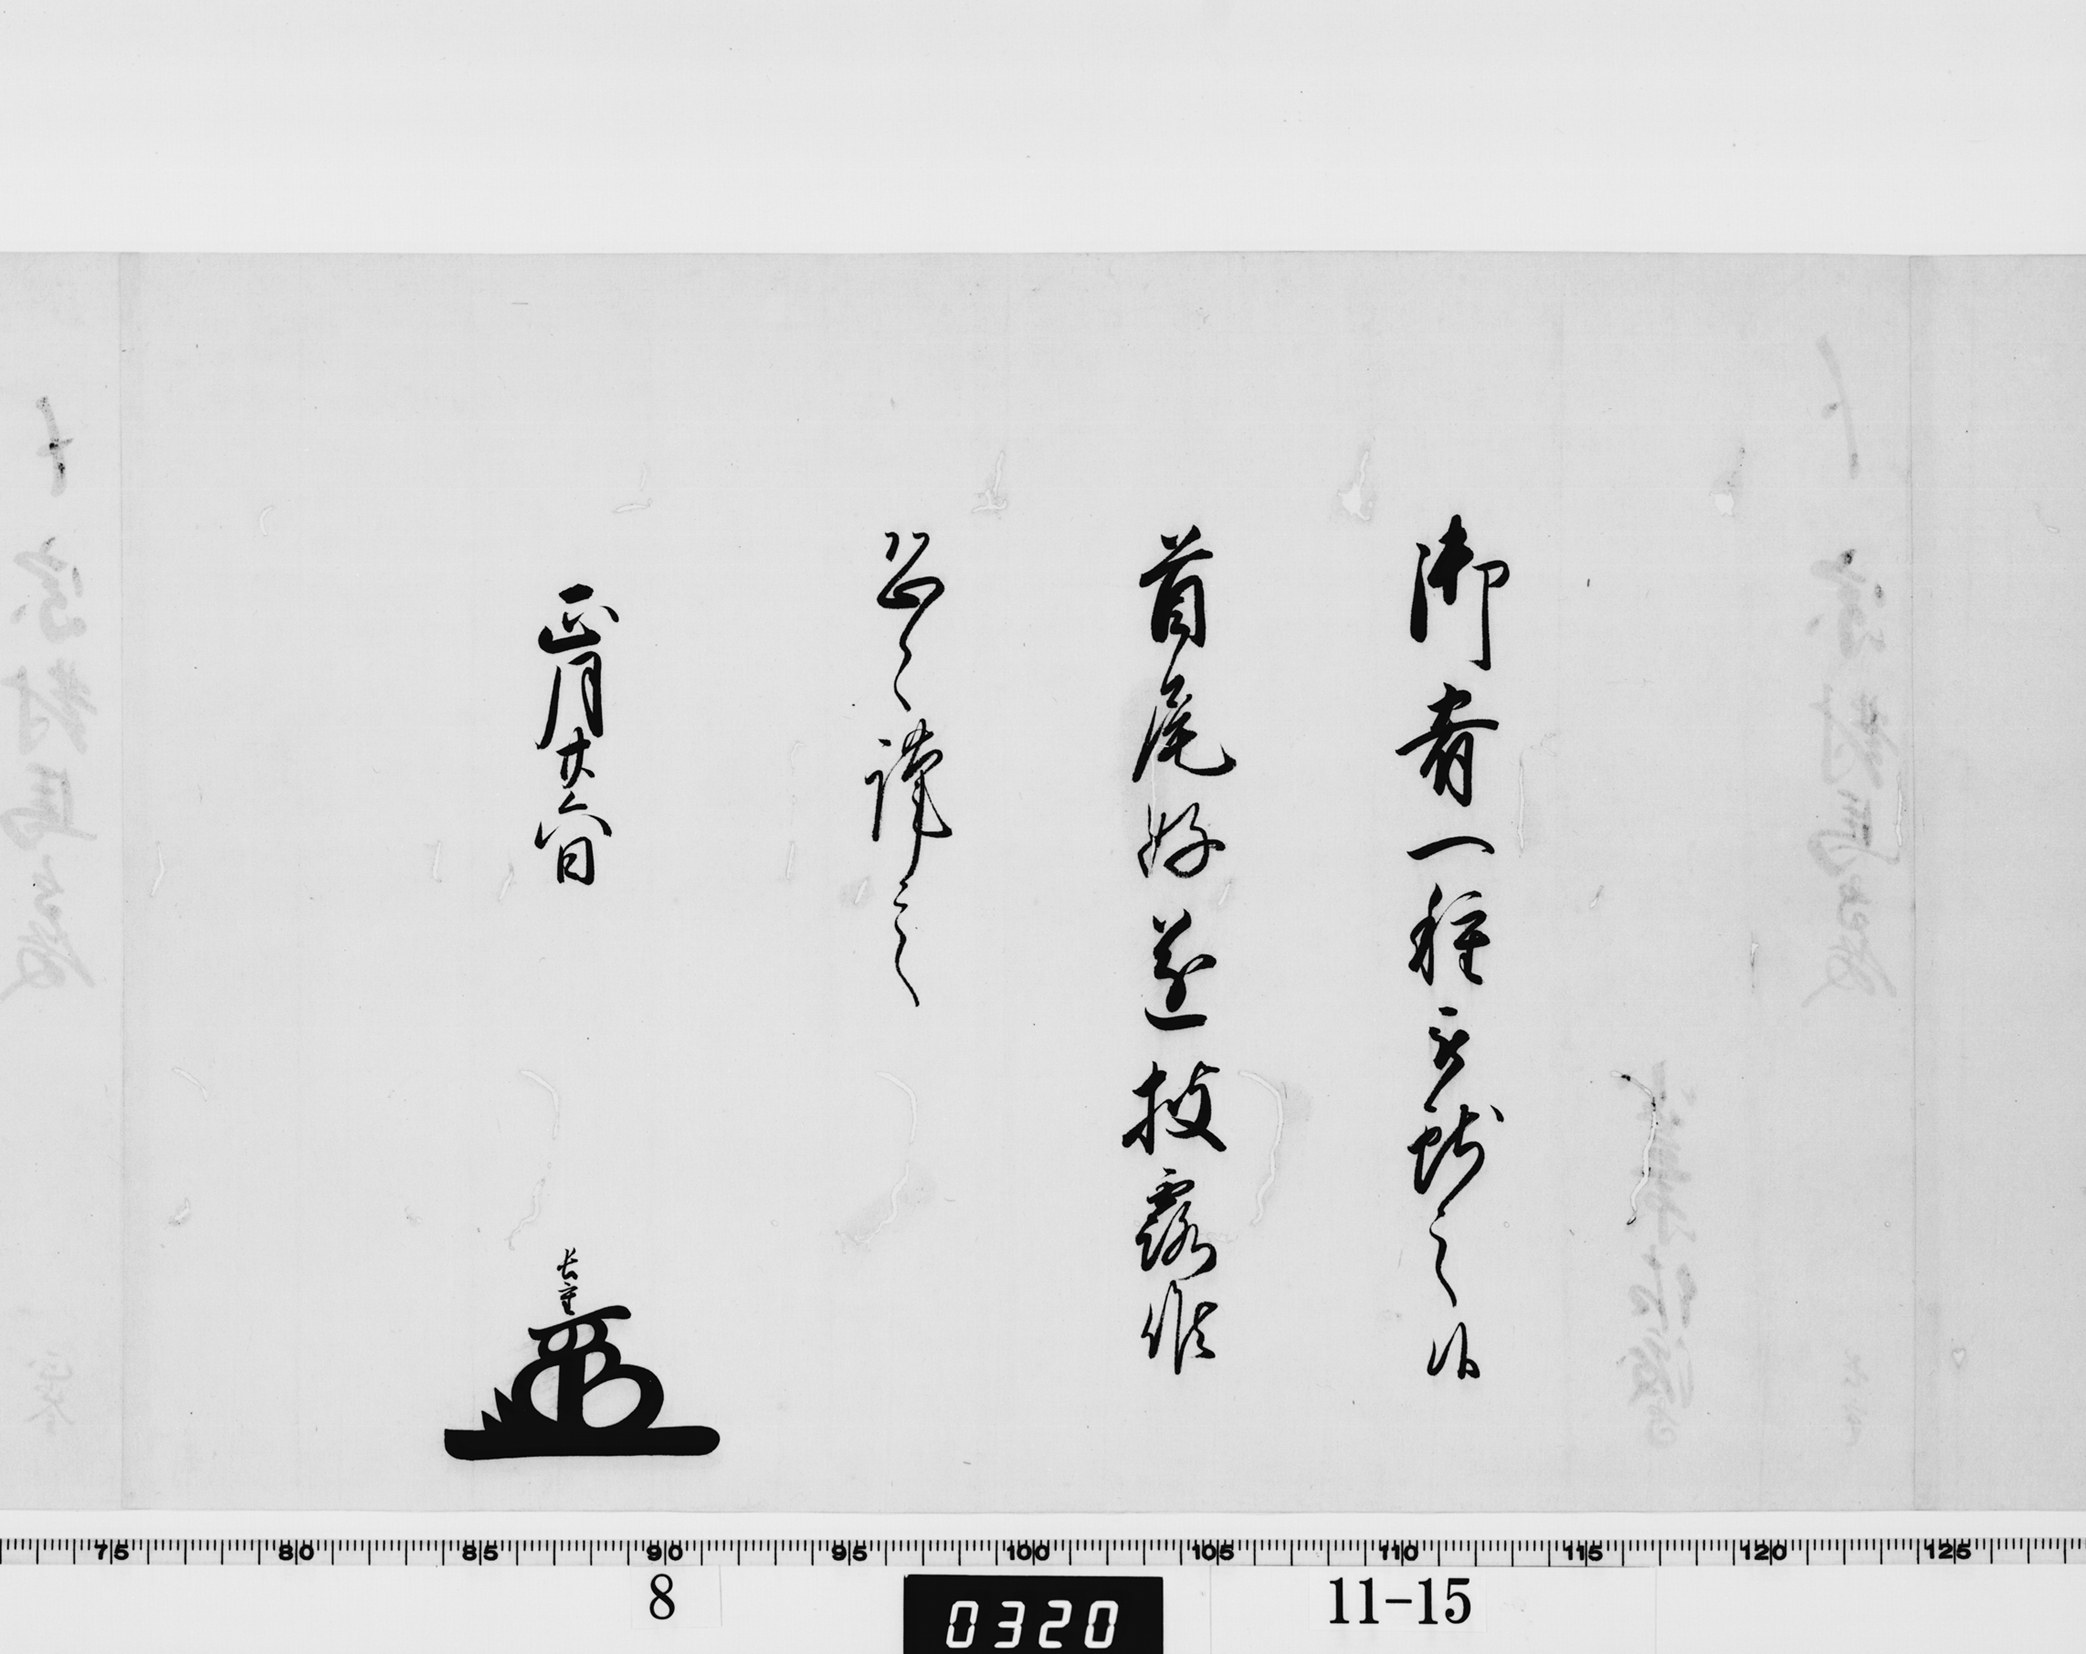 御肴一種被献之
首尾好遂披露候
恐々謹言
正月廿六日
長重
75 80 85 90 95 100 105 110 115 120 125
8 0320 11-15